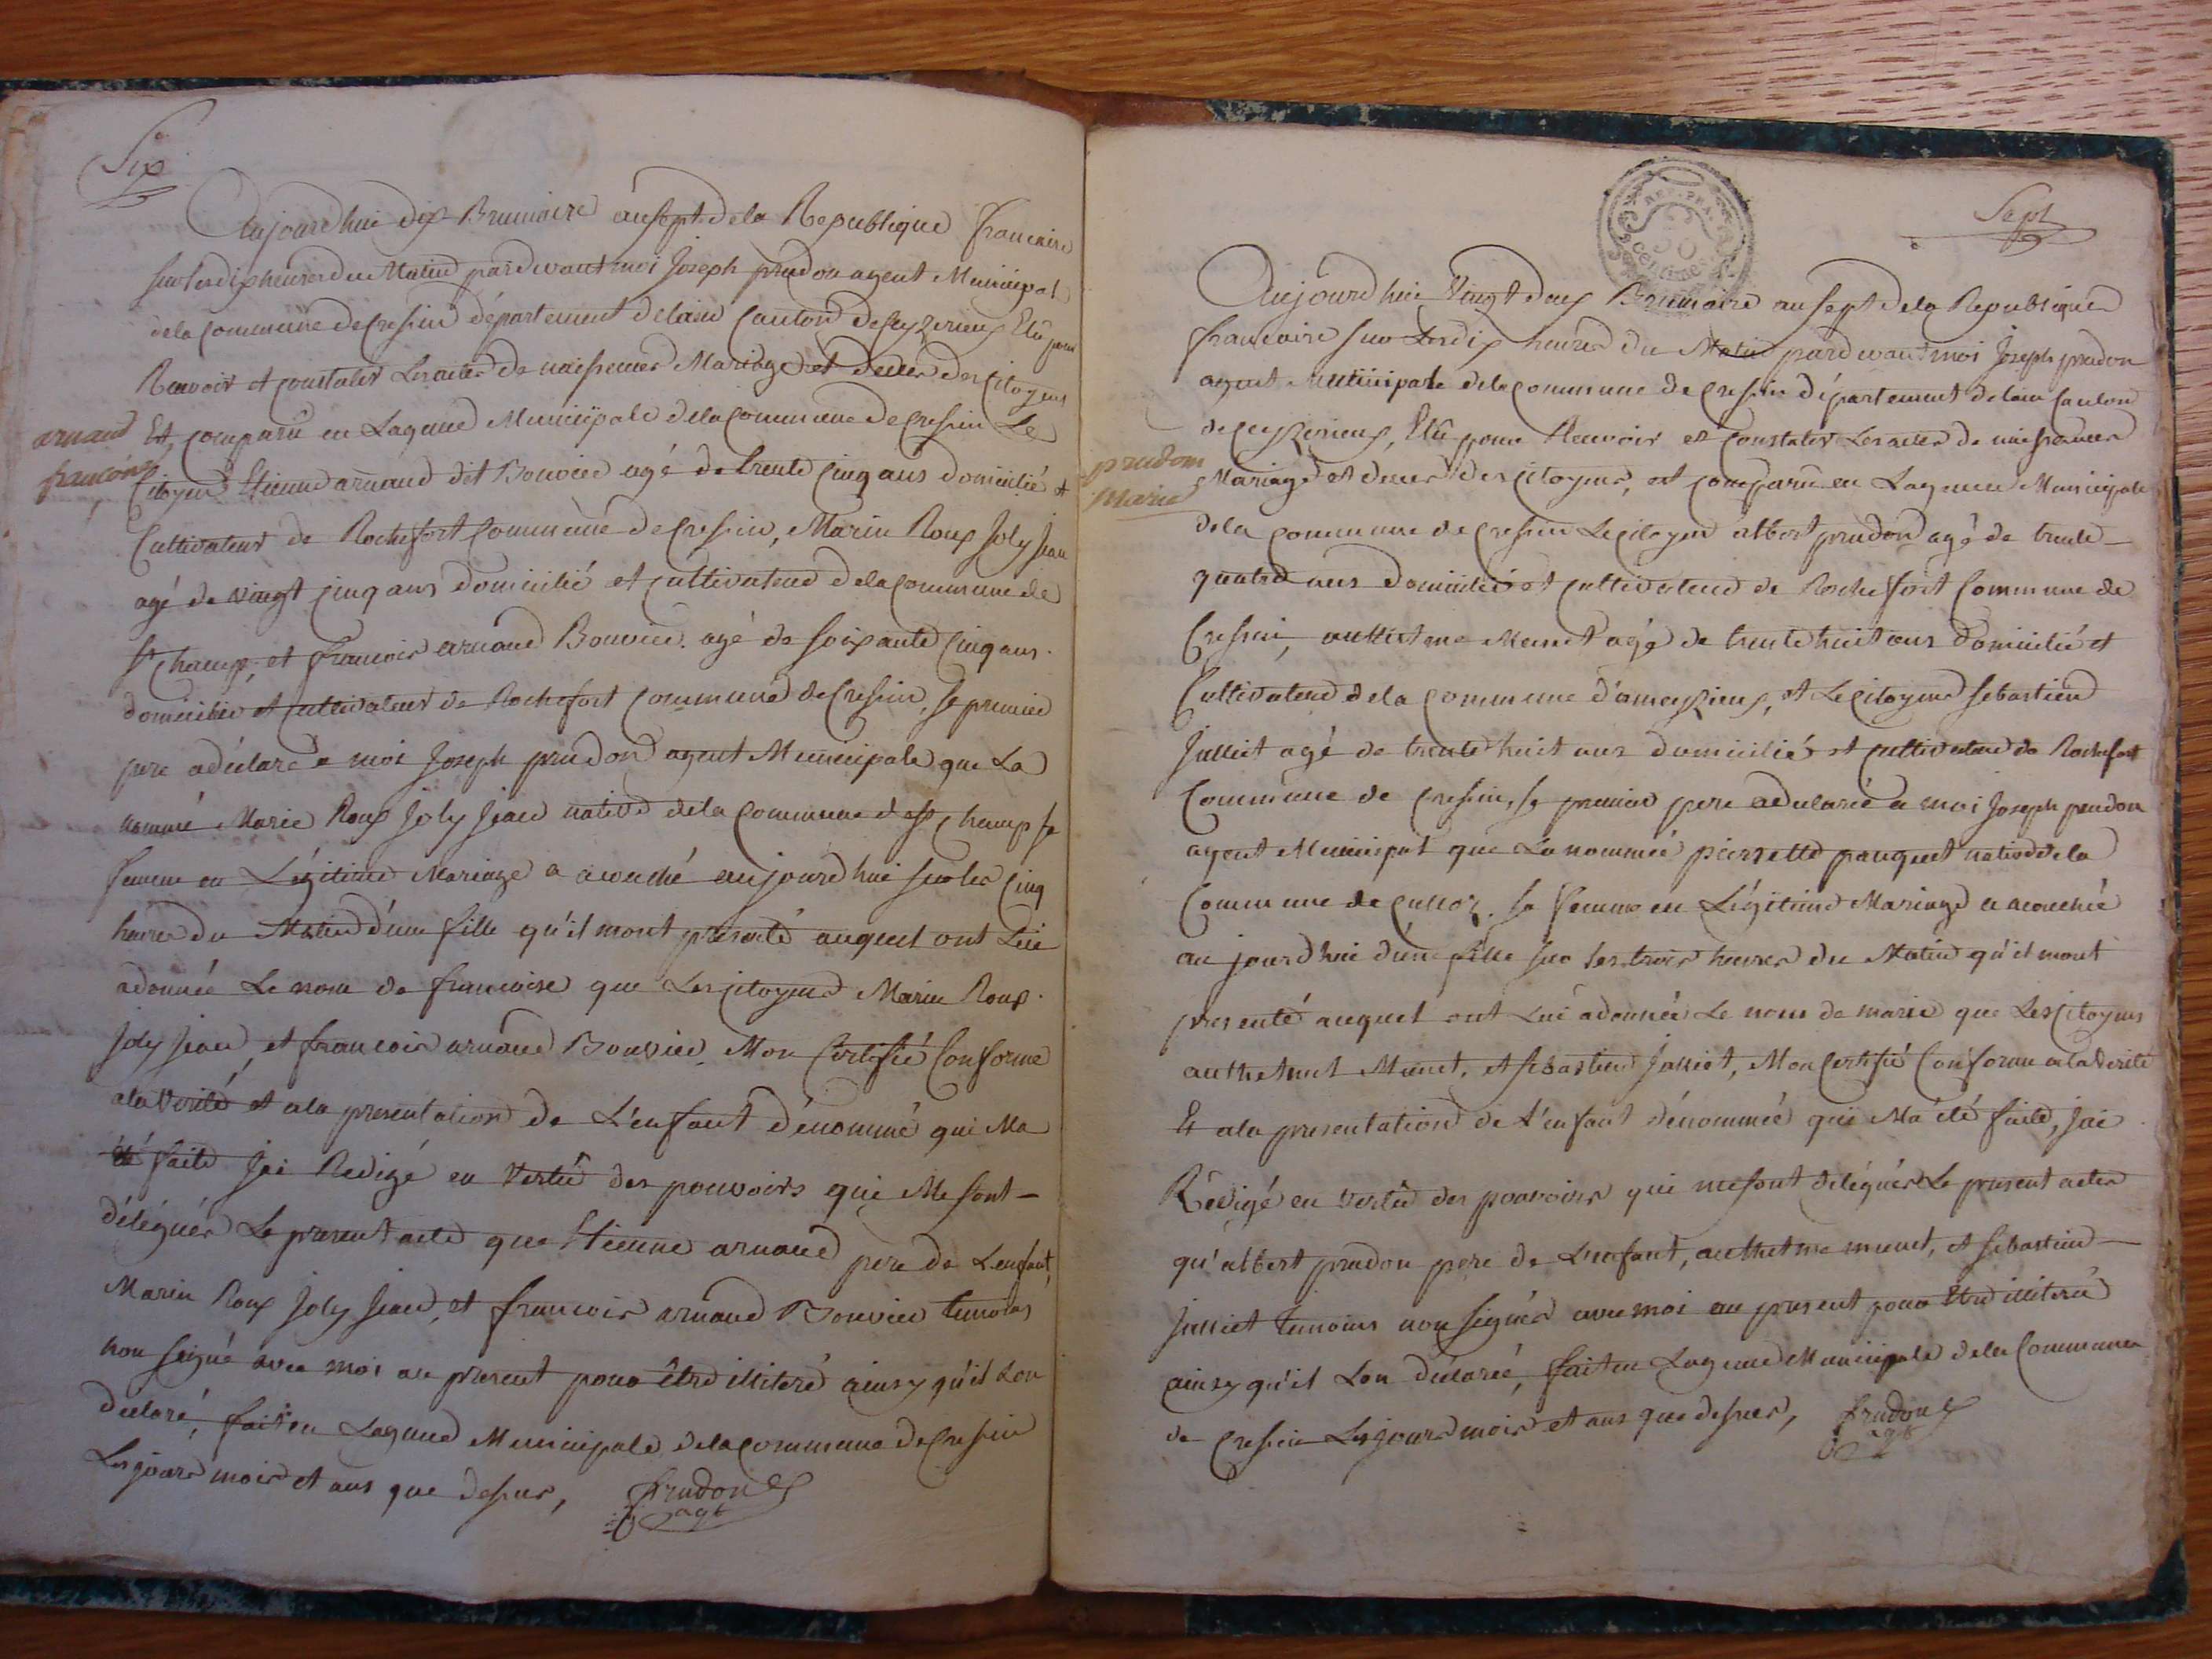 Six
Aujourdhui dix Brumaire ansept dela Republique francaise
sur les dix heures du Matin pardevant moi Joseph prudon agent Municipal
dela commune de Cressin département delain Canton de Ceyzerieux Elû pour
Recevoir et constater les actes de naissences Mariage et deces des Citoyens
Et comparû en Lagence Municipale dela commune de Cressin Le
Citoyen Etienne arnaud dit Bouvier agé de trente cinq ans domicilié et
Cultivateur de Rochefort Commune de Cressin, Marin Roux Joly Jean
agé de vingt cinq ans domicilié et cultivateur dela commune de
St champ, et francois arnaud Bouvier agé de soixante cinq ans
domicilié et cultivateur de Rochefort Commune de Cressin, le premier
pere a déclaré a moi Joseph prudon agent Municipale que La
nommé Marie Roux Joly Jean native dela commune de St champ sa
femme en Légitime Mariage a acouché aujourdhui sur les cinq
heures du Matin d'une fille qu'il mont présenté auquel ont Lui
adonnée Le nom de francoise que Les citoyens Marin Roux
joly jean, et francois arnaud Bouvier Mon Certifié Conforme
ala Verité et ala presentation de L'enfant dénommé qui Ma
été faite Jai Redigé en Vertû des pouvoirs qui Me sont
délégués Le present acte que Etienne arnaud pere de L'enfant,
Marin Roux Joly Jean, et francois arnaud Bouvier temoins
non signé avec moi au present pour être illiteré ainsy qu'il Lon
declaré, fait en Lagence Municipale dela commune de Cressin
Les jours mois et ans que dessus, Prudon
agt
arnaud
francoise
Sept
REP. FRA.
50
centimes
Aujourd hui Vingt deux Brumaire an sept dela Republique
francaise sur Les dix heures du Matin pardevant moi Joseph prudon
agent Municipale dela commune de Cressin département delain Canton
de Ceyzerieux, Elû pour Recevoir et Constater Les actes de naissances
Mariage et deces des Citoyens, est comparu en Lagence Municipale
dela commune de Cressin Le citoyen albert prudon agé de trente
quatre ans domicilié et cultivateur de Rochefort Commune de
Cressin, authetme Munet agé de trente huit ans domicilié et
Cultivateur dela commune d'ameyzieux, et Le citoyen sebastien
Julliet agé de trente huit ans domicilié et cultivateur de Rochefort
Commune de Cressin, le premier pere adeclarée a moi Joseph prudon
agent Municipal que La nommée pierrette pauquet native dela
Commune de Culloz. sa femme en Légitime Mariage a acouchée
au jourdhui d'une fille sur les trois heures du Matin qu'il mont
presenté auquel ont Lui adonnée Le nom de marie que Les Citoyens
Munet, et sebastien Julliet, Mon Certifié Conforme ala Verité
Et ala presentation de L'enfant dénommée qui Ma été faite, jai
Rédigé en Vertû des pouvoirs qui me sont délégués Le present actes
qu'albert prudon pere de Lenfant, authetme munet, et sebastien
Julliet temoins non signés avec moi au present pour être illiteré
ainsy qu'il Lon déclarée, fait en Lagence Municipale dela Commune
de Cressin Les jours mois et ans que dessus, Prudon
agt
prudon
Marie